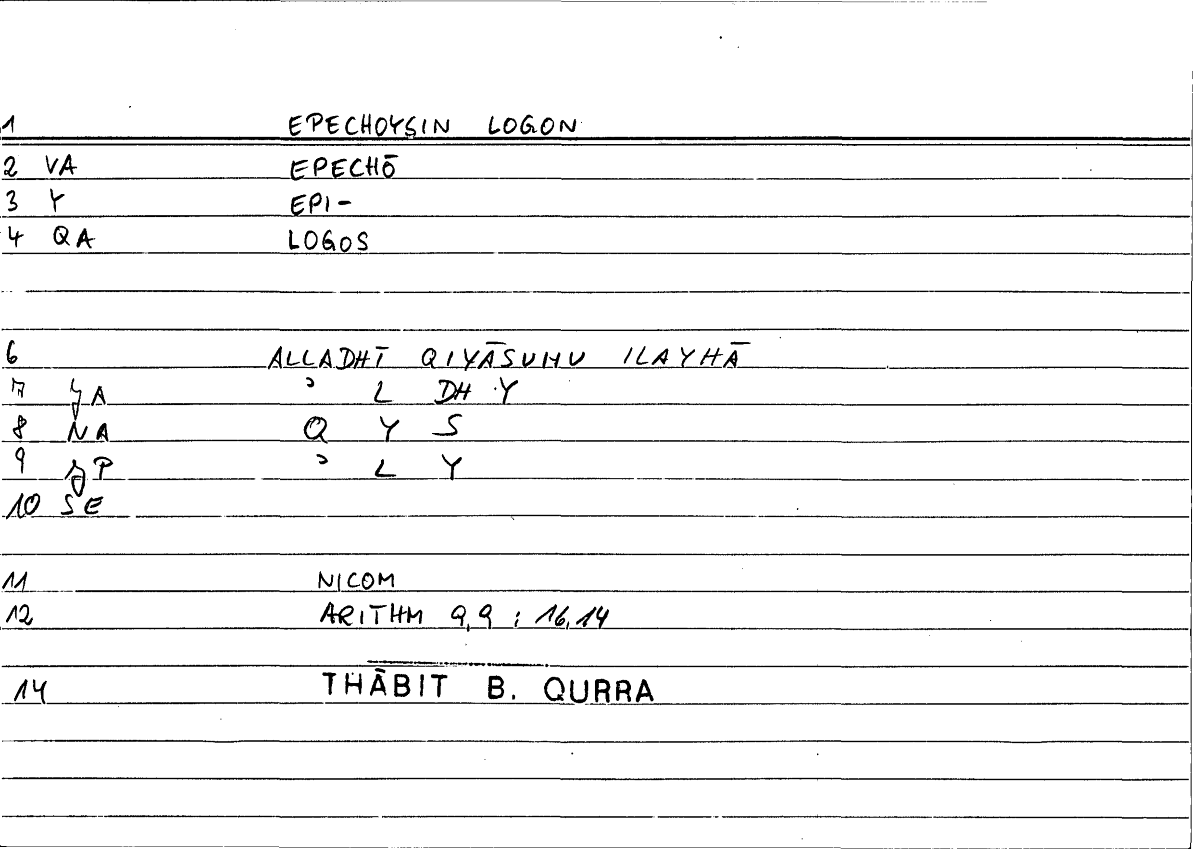 1 EPECHOYSIN LOGON
2 VA EPECHŌ
3 Y EPI-
4 QA LOGOS
6 ALLADHĪ QIYĀSUHU ILAYHĀ
7 A ʾ L DH Y
8 NA Q Y S
9 P ʾ L Y
10 SE
11 NICOM
12 ARITHM 9,9 ; 16,14
14 THĀBIT B. QURRA